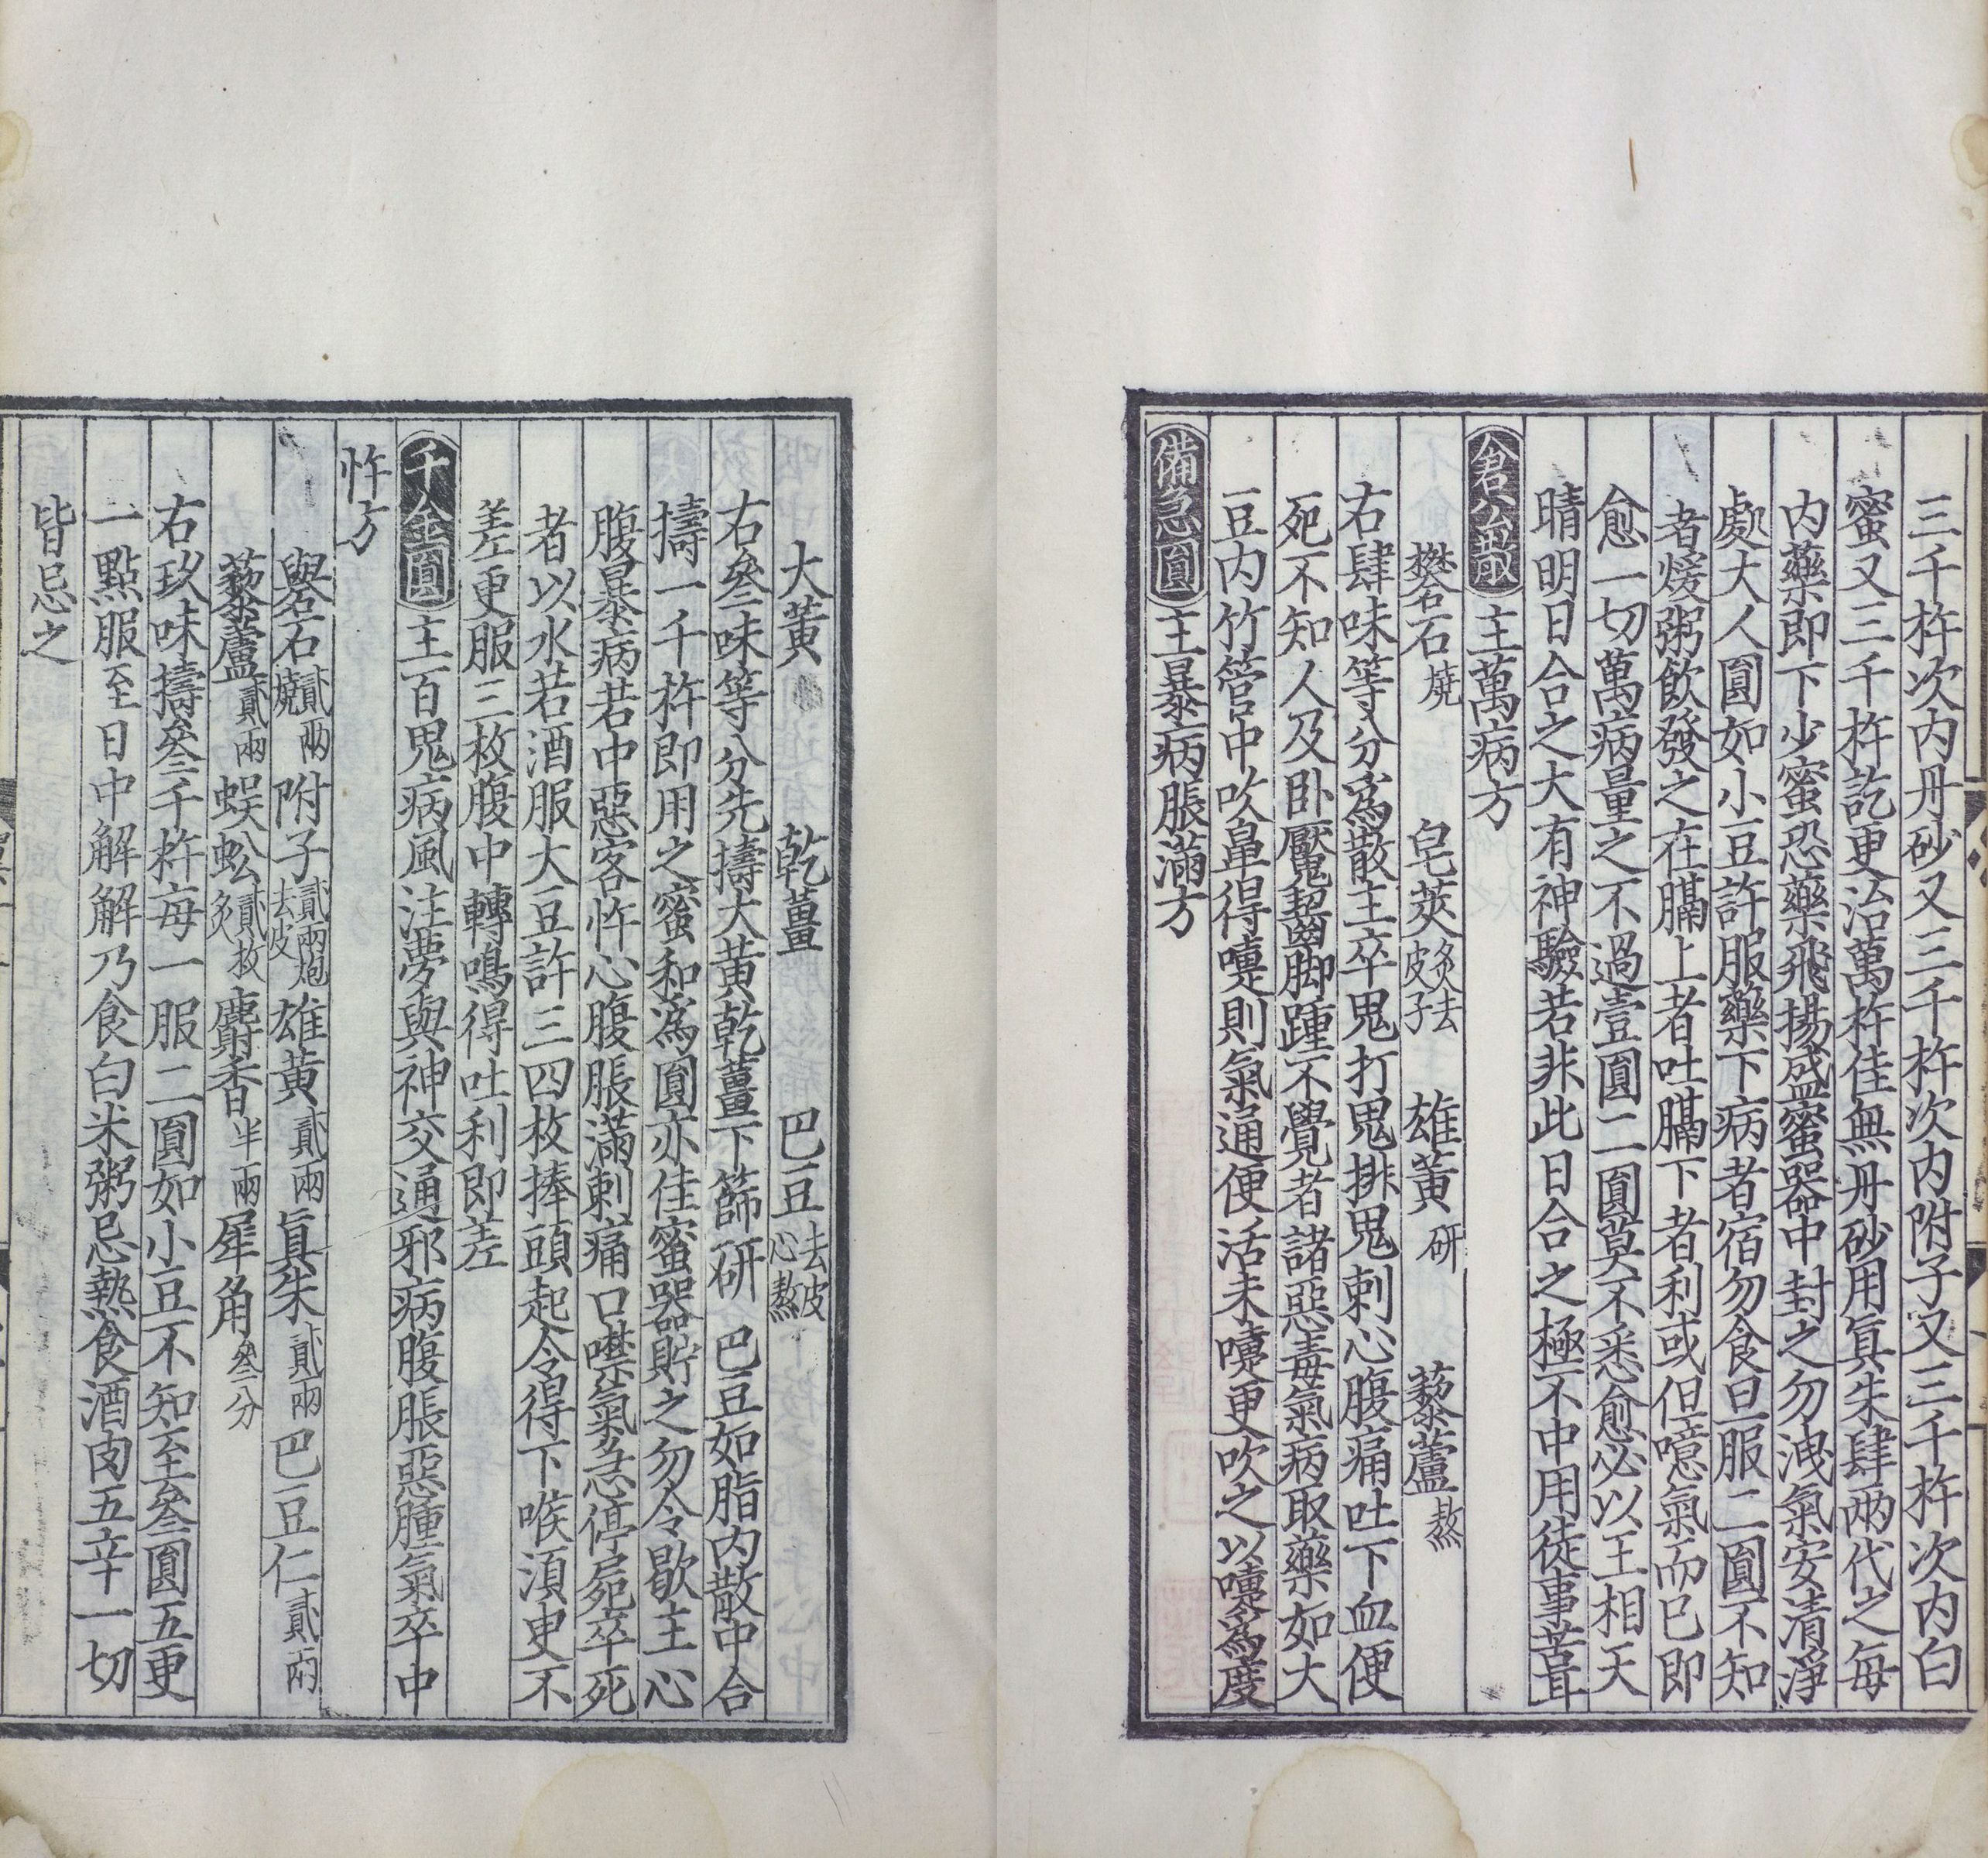 三千杵次内丹砂又三千杵次内附子又三千杵次内白
蜜又三千杵訖更治萬杵佳無丹砂用眞朱肆兩代之每
内藥即下少蜜恐藥飛揚盛蜜器中封之勿洩氣安清淨
處大人圓如小豆許服藥下病者宿勿食旦服二圓不知
者煖粥飲發之在膈上者吐膈下者利或但噫氣而已即
愈一切萬病量之不過壹圓二圓莫不悉愈必以王相天
晴明日合之大有神驗若非此日合之極不中用徒事葺
倉公散主萬病方
礬石燒 皂莢炙去皮子 雄黃研 藜蘆熬
右肆味等分爲散主卒鬼打鬼排鬼刺心腹痛吐下血便
死不知人及卧魘齧脚踵不覺者諸惡毒氣病取藥如大
豆内竹管中吹鼻得嚏則氣通便活未嚏更吹之以嚏爲度
備急圓主暴病脹滿方
大黃 乾薑 巴豆去皮心熬
右叄味等分先擣大黃乾薑下篩研巴豆如脂内散中合
擣一千杵即用之蜜和爲圓亦佳蜜器貯之勿令歇主心
腹暴病若中惡客忤心腹脹滿刺痛口噤氣急停屍卒死
者以水若酒服大豆許三四枚捧頭起令得下喉須臾不
差更服三枚腹中轉鳴得吐利即差
千金圓主百鬼病風注夢與神交通邪病腹脹惡腫氣卒中
忤方
礜石貳兩燒 附子貳兩炮去皮 雄黃貳兩 眞朱貳兩 巴豆仁貳兩
藜蘆貳兩 蜈蚣貳枚炙 麝香半兩 犀角叄分
右玖味擣叄千杵每一服二圓如小豆不知至叄圓五更
一點服至日中解解乃食白米粥忌熱食酒肉五辛一切
皆忌之